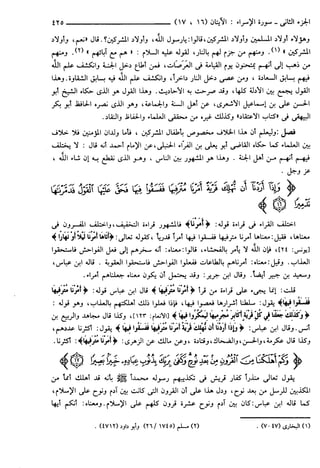 الجزء الثاني - سورة الإسراء: الآيتان (١٦ ، ١٧) ٤٢٥
وهؤلاء أولاد المسلمين وأولاد المشركين، قالوا: يارسول الله، وأولاد المشركين؟. قال: نعم، وأولاد
المشركين (١). ومنهم من جزم لهم بالنار، لقوله عليه السلام: «هم مع آبائهم» (٢). ومنهم
من ذهب إلى أنهم يمتحنون يوم القيامة في العرصات، فمن أطاع دخل الجنة وانكشف علم الله
فيهم بسابق السعادة، ومن عصى دخل النار داخراً، وانكشف علم الله فيه بسابق الشقاوة. وهذا
القول يجمع بين الأدلة كلها، وقد صرحت به الأحاديث. وهذا القول هو الذي حكاه الشيخ أبو
الحسن علي بن إسماعيل الأشعري، عن أهل السنة والجماعة، وهو الذي نصره الحافظ أبو بكر
البيهقي في «كتاب الاعتقاد» وكذلك غيره من محققي العلماء والحفاظ والنقاد.
فصل: وليعلم أن هذا الخلاف مخصوص بأطفال المشركين، فأما ولدان المؤمنين فلا خلاف
بين العلماء كما حكاه القاضي أبو يعلى بن الفراء الحنبلي، عن الإمام أحمد أنه قال: لا يختلف
فيهم أنهم من أهل الجنة. وهذا هو المشهور بين الناس، وهو الذي نقطع به إن شاء الله،
عز وجل.
﴿وَإِذَا أَرَدْنَا أَن نُّهْلِكَ قَرْيَةً أَمَرْنَا مُتْرَفِيهَا فَفَسَقُوا فِيهَا فَحَقَّ عَلَيْهَا الْقَوْلُ فَدَمَّرْنَاهَا
تَدْمِيرًا ﴾
اختلف القراء في قراءة قوله: ﴿أَمَرْنَا﴾ فالمشهور قراءة التخفيف، واختلف المفسرون في
معناها، فقيل: معناها أمرنا مترفيها ففسقوا فيها أمراً قدرياً، كقوله تعالى: ﴿أَتَاهَا أَمْرُنَا لَيْلًا أَوْ نَهَارًا﴾
[يونس: ٢٤]، فإن الله لا يأمر بالفحشاء، قالوا: معناه: أنه سخرهم إلى فعل الفواحش فاستحقوا
العذاب. وقيل: معناه: أمرناهم بالطاعات ففعلوا الفواحش فاستحقوا العقوبة. قاله ابن عباس،
وسعيد بن جبير أيضاً. وقال ابن جرير: وقد يحتمل أن يكون معناه جعلناهم أمراء.
قلت: إنما يجيء على قراءة من قرأ ﴿أَمَّرْنَا مُتْرَفِيهَا﴾ قال ابن عباس قوله: ﴿أَمَّرْنَا مُتْرَفِيهَا
فَفَسَقُوا فِيهَا﴾ يقول: سلطنا أشرارها فعصوا فيها، فإذا فعلوا ذلك أهلكتهم بالعذاب، وهو قوله:
﴿وَكَذَلِكَ جَعَلْنَا فِي كُلِّ قَرْيَةٍ أَكَابِرَ مُجْرِمِيهَا لِيَمْكُرُوا فِيهَا﴾ [الأنعام: ١٢٣]، وكذا قال مجاهد والربيع بن
أنس. وقال ابن عباس: ﴿وَإِذَا أَرَدْنَا أَن نُّهْلِكَ قَرْيَةً أَمَرْنَا مُتْرَفِيهَا فَفَسَقُوا فِيهَا﴾ يقول: أكثرنا عددهم،
وكذا قال عكرمة، والحسن، والضحاك، وقتادة، وعن مالك عن الزهري: ﴿أَمَرْنَا مُتْرَفِيهَا﴾: أكثرنا.
﴿وَكَمْ أَهْلَكْنَا مِنَ الْقُرُونِ مِن بَعْدِ نُوحٍ وَكَفَى بِرَبِّكَ بِذُنُوبِ عِبَادِهِ خَبِيرًا بَصِيرًا ﴾
يقول تعالى منذراً كفار قريش في تكذيبهم رسوله محمداً ﷺ بأنه قد أهلك أمماً من
المكذبين للرسل من بعد نوح، ودل هذا على أن القرون التي كانت بين آدم ونوح على الإسلام،
كما قاله ابن عباس: كان بين آدم ونوح عشرة قرون كلهم على الإسلام. ومعناه: أنكم أيها
(١) البخاري (٧٠٤٧). (٢) مسلم (١٧٤٥ / ٢٦) وأبو داود (٤٧١٢).